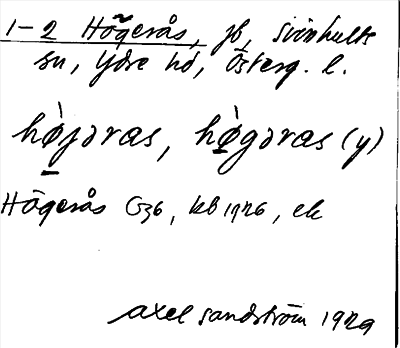 1-2 Högerås, jb, Svinhults
sn, Ydre hd, Österg. l.
hø̀jǝras, hø̀gǝras (y)
Högerås G36, kb 1926, ek
Axel Sandström 1929